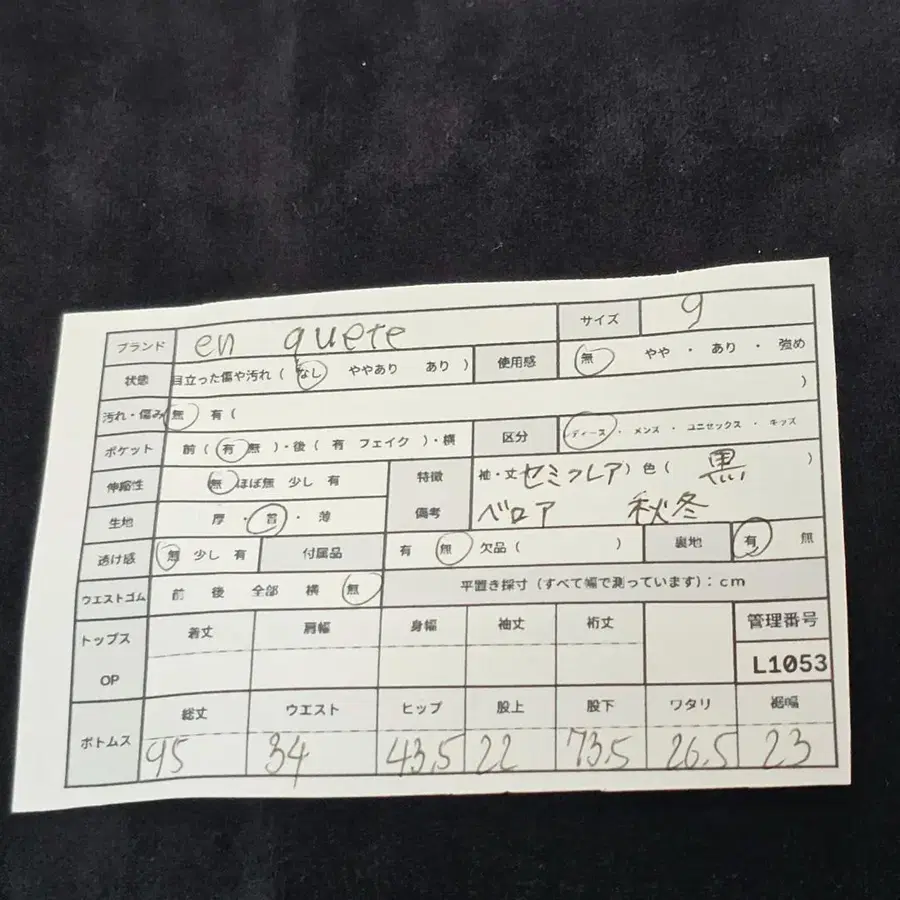 ブランド en quete サイズ 9
状態 目立った傷や汚れ ( なし ややあり あり ) 使用感 無 やや ・ あり ・ 強め
汚れ・傷み 無 有 ( )
ポケット 前 ( 有 無 ) ・後 ( 有 フェイク ) ・横 区分 レディース ・ メンズ ・ ユニセックス ・ キッズ
伸縮性 無 ほぼ無 少し 有 特徴 袖・丈 セミフレア ) 色 ( 黒 )
生地 厚 ・ 普 ・ 薄 備考 ベロア 秋冬
透け感 無 少し 有 付属品 有 無 欠品 ( ) 裏地 有 無
ウエストゴム 前 後 全部 横 無 平置き採寸 (すべて幅で測っています) : cm
トップス OP 着丈 肩幅 身幅 袖丈 裄丈 管理番号
L1053
ボトムス 総丈 ウエスト ヒップ 股上 股下 ワタリ 裾幅
95 34 43.5 22 73.5 26.5 23